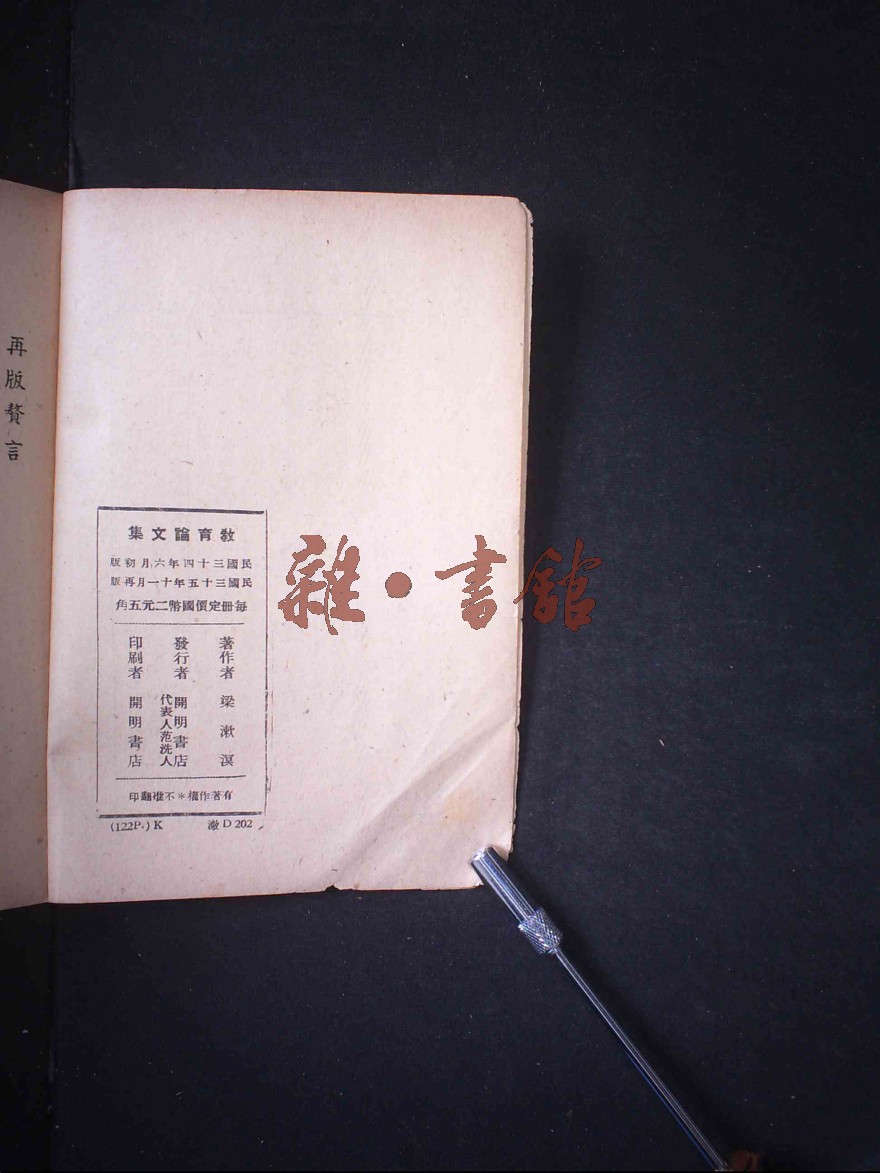 再版贅言
教育論文集
民國三十四年六月初版
民國三十五年十一月再版
每冊定價國幣二元五角
著作者 梁漱溟
發行者 開明書店
代表人范洗人
印刷者 開明書店
有著作權＊不准翻印
(122P.) K 漱 D 202
雜・書館